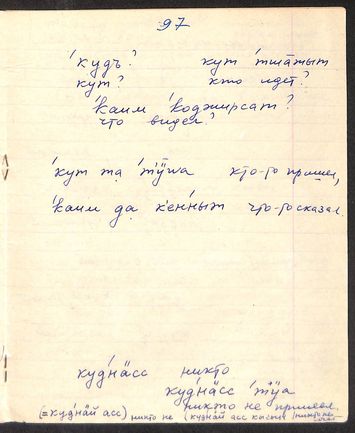 97
ʹкудъ? кут ʹтша̄тыт
кут? кто идет?
ʹкаим ʹкоджирсат?
что видел?
ʹкут та ʹтӱ̄ша кто-то пришел,
ʹкаим да кʹе́нныт что-то сказал.
кудʹнӓсс никто
кудʹнӓсс ʹтӱа
никто не пришел.
(=кудʹнӓй асс) никто не (кудʹнӓй асс кысыт